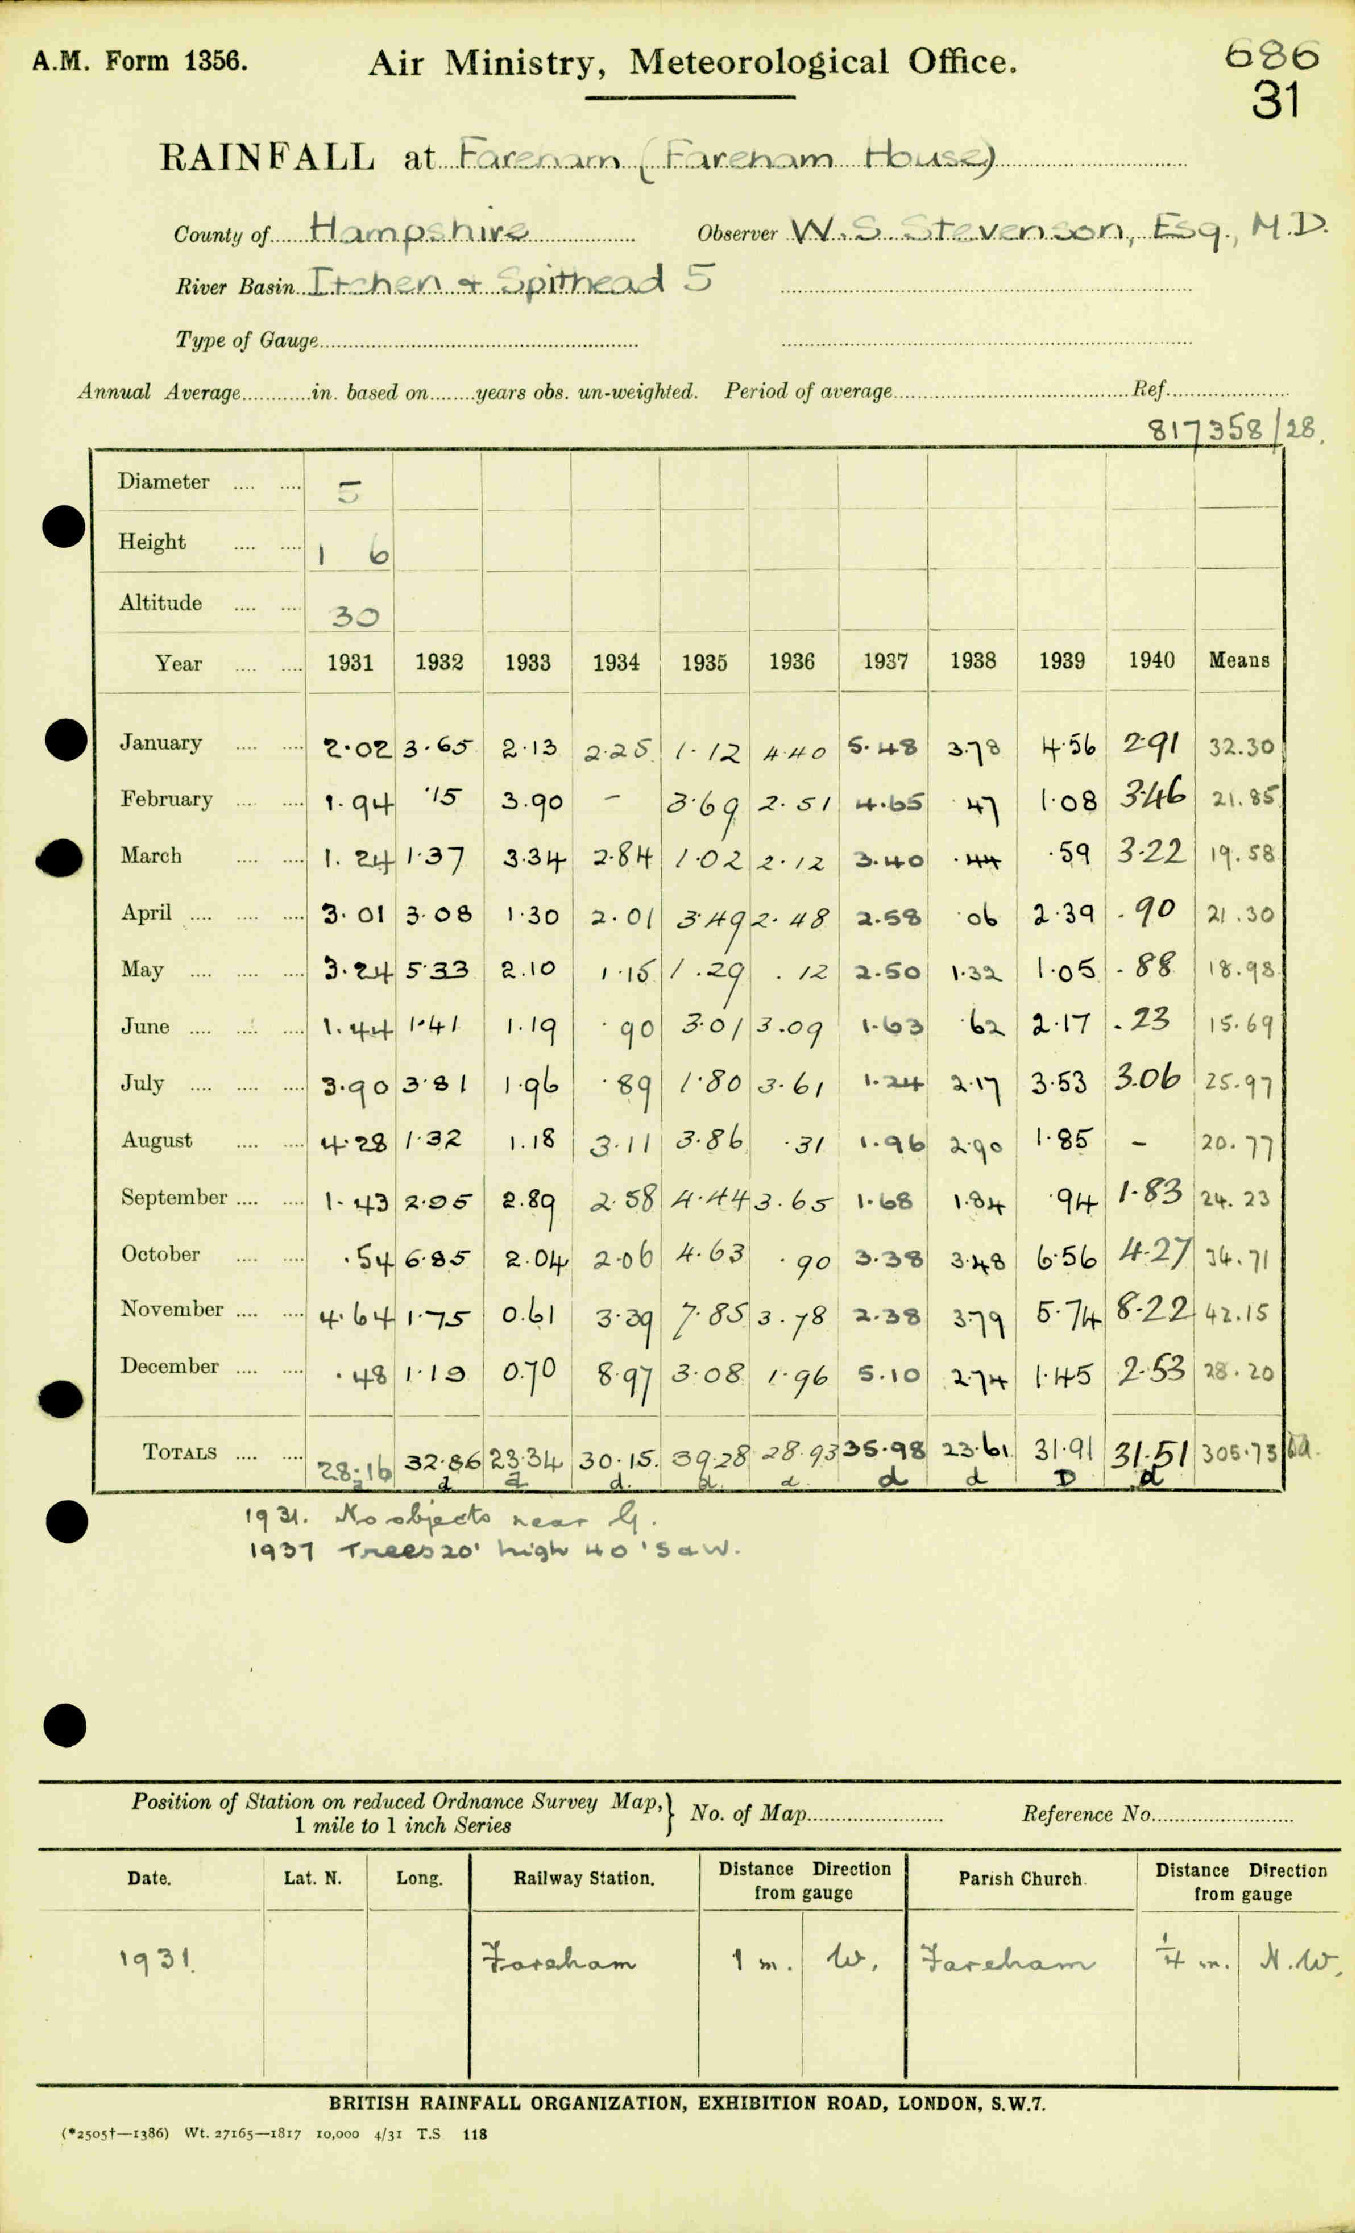 A.M. Form 1356. Air Ministry, Meteorological Office. 686
31
RAINFALL at Fareham (Fareham House)
County of Hampshire Observer W. S. Stevenson, Esq., M.D.
River Basin Itchen + Spithead 5
Type of Gauge
Annual Average in. based on years obs. un-weighted. Period of average Ref.
817358/28.
Diameter 5
Height 1 6
Altitude 30
Year 1931 1932 1933 1934 1935 1936 1937 1938 1939 1940 Means
January 2.02 3.65 2.13 2.25 1.12 4.40 5.48 3.78 4.56 2.91 32.30
February 1.94 .15 3.90 - 3.69 2.51 4.65 .47 1.08 3.46 21.85
March 1.24 1.37 3.34 2.84 1.02 2.12 3.40 .44 .59 3.22 19.58
April 3.01 3.08 1.30 2.01 3.49 2.48 2.58 .06 2.39 .90 21.30
May 3.24 5.33 2.10 1.15 1.29 .12 2.50 1.32 1.05 .88 18.98
June 1.44 1.41 1.19 .90 3.01 3.09 1.63 .62 2.17 .23 15.69
July 3.90 3.81 1.96 .89 1.80 3.61 1.24 2.17 3.53 3.06 25.97
August 4.28 1.32 1.18 3.11 3.86 .31 1.96 2.90 1.85 - 20.77
September 1.43 2.95 2.89 2.58 4.44 3.65 1.68 1.84 .94 1.83 24.23
October .54 6.85 2.04 2.06 4.63 .90 3.38 3.48 6.56 4.27 34.71
November 4.64 1.75 0.61 3.39 7.85 3.78 2.38 3.79 5.74 8.22 42.15
December .48 1.19 0.70 8.97 3.08 1.96 5.10 2.74 1.45 2.53 28.20
TOTALS 28.16 32.86 23.34 30.15 39.28 28.93 35.98 23.61 31.91 31.51 305.73
d d d. d. d d d D d
1931. No objects near G.
1937 Trees 20' high 40' S & W.
Position of Station on reduced Ordnance Survey Map, No. of Map Reference No.
1 mile to 1 inch Series
Date. Lat. N. Long. Railway Station. Distance Direction from gauge Parish Church. Distance Direction from gauge
1931. Fareham 1 m. W. Fareham 1/4 m. N.W.
BRITISH RAINFALL ORGANIZATION, EXHIBITION ROAD, LONDON, S.W.7.
(*2505†—1386) Wt. 27165—1817 10,000 4/31 T.S 118